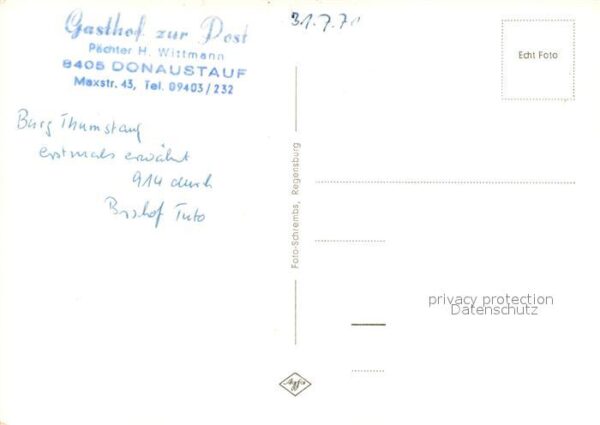 Gasthof zur Post
Pächter H. Wittmann
8405 DONAUSTAUF
Maxstr. 43, Tel. 09403/232
31.7.71
Echt Foto
Burg Thumstauf
erstmals erwähnt
914 durch
Bischof Tuto
Foto-Schrembs, Regensburg
privacy protection
Datenschutz
Agfa